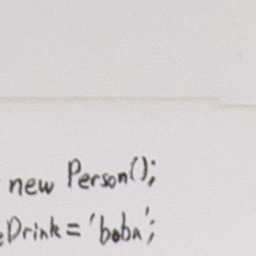 new Person();
eDrink = 'boba';